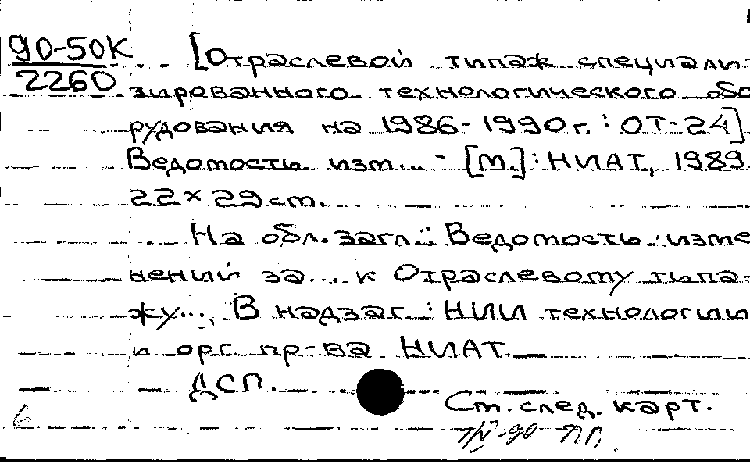 90-50К
2260
[Отраслевой типаж специали-
зированного технологического обо
рудования на 1986-1990г.: ОТ-24]
Ведомость изм... - [М.]: НИАТ, 1989
22×29см.
На обл. загл.: Ведомость изме
нений за... к Отраслевому типа-
жу... В надзаг.: НИИ технологии
и орг. пр-ва НИАТ
ДСП.
Ст. след. карт.